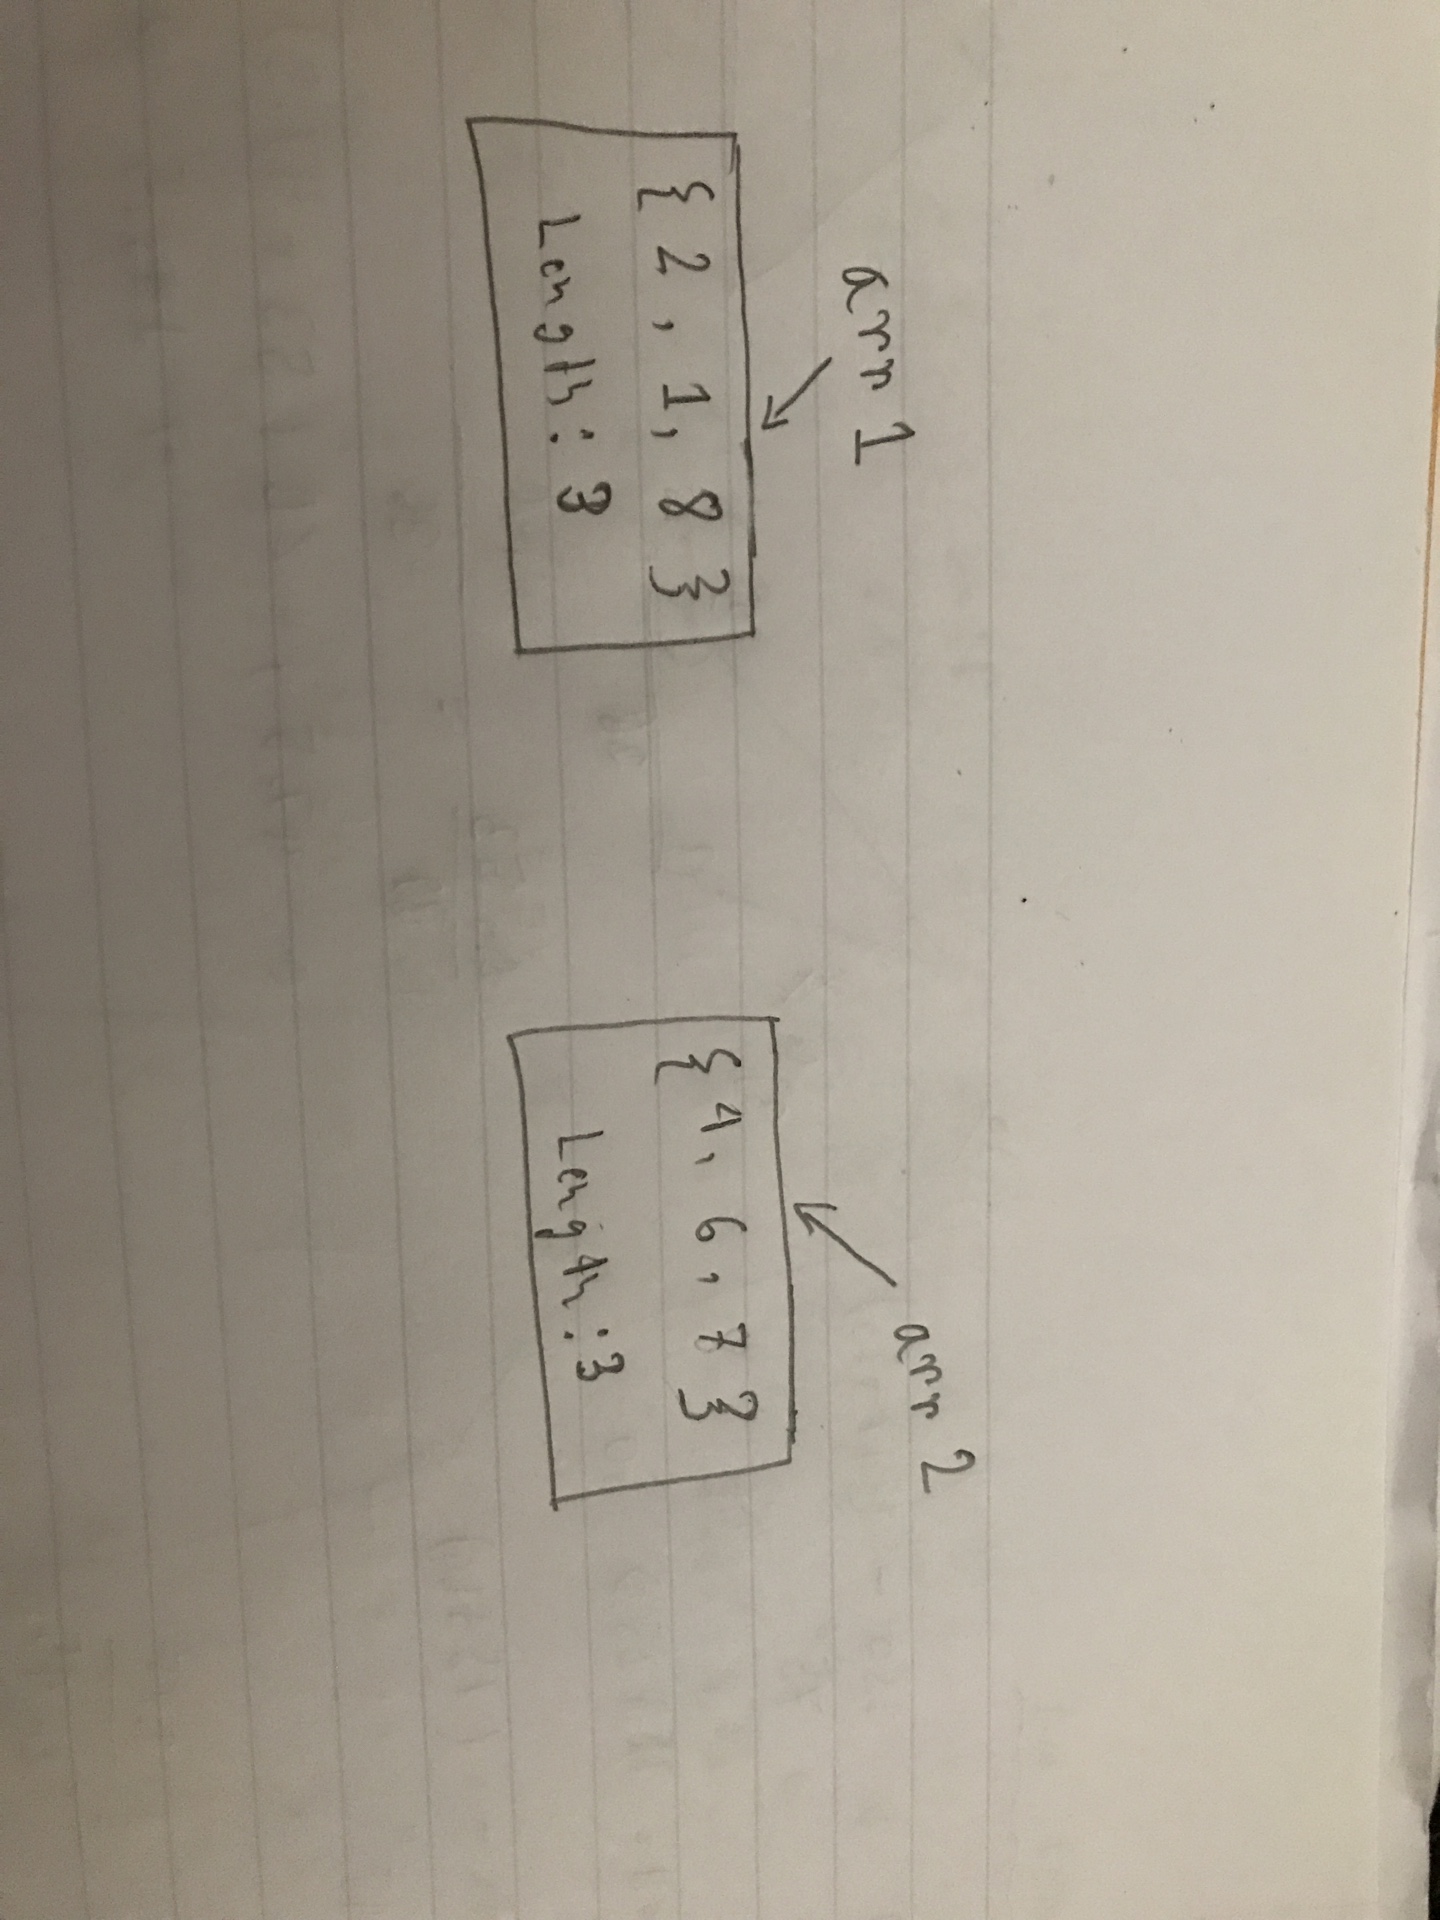 arr 1
{ 2 , 1 , 8 }
Length : 3
arr 2
{ 4 , 6 , 7 }
Length : 3